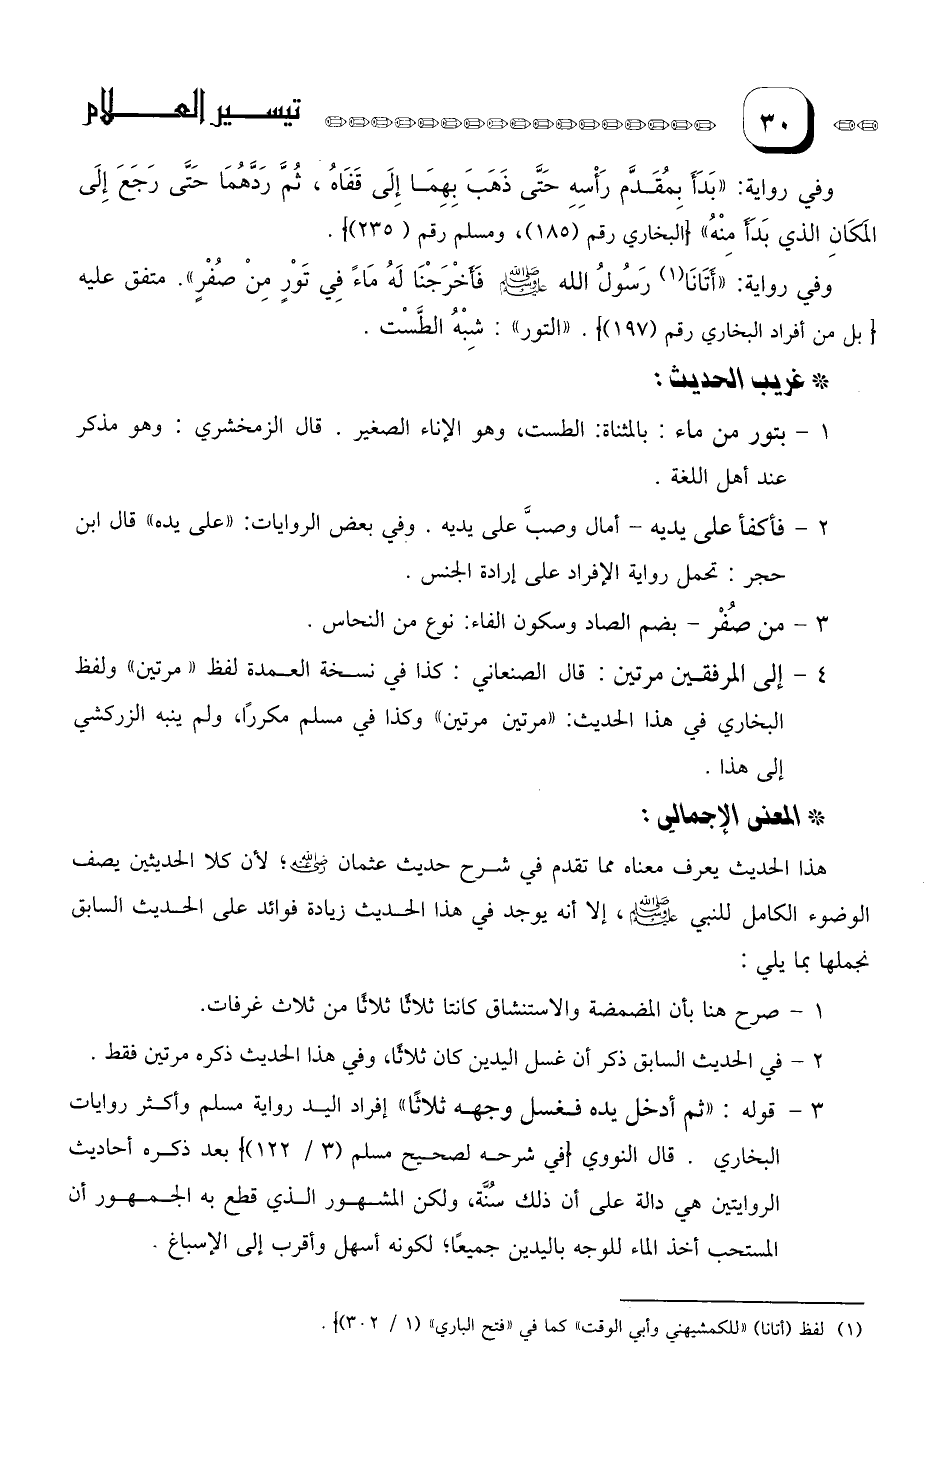 ٣٠ تيسير العلام
وفي رواية: «بَدَأَ بِمُقَدَّمِ رَأْسِهِ حَتَّى ذَهَبَ بِهِمَا إِلَى قَفَاهُ ، ثُمَّ رَدَّهُمَا حَتَّى رَجَعَ إِلَى
المَكَانِ الذي بَدَأَ مِنْهُ» {البخاري رقم (١٨٥)، ومسلم رقم ( ٢٣٥)} .
وفي رواية: «أَتَانَا(١) رَسُولُ الله ﷺ فَأَخْرَجْنَا لَهُ مَاءً فِي تَوْرٍ مِنْ صُفْرٍ». متفق عليه
{ بل من أفراد البخاري رقم (١٩٧)} . «التور» : شِبْهُ الطَّسْت .
* غريب الحديث :
١ – بتور من ماء : بالمثناة: الطست، وهو الإناء الصغير . قال الزمخشري : وهو مذكر
عند أهل اللغة .
٢ – فأكفأ على يديه – أمال وصبَّ على يديه . وفي بعض الروايات: «على يده» قال ابن
حجر : تحمل رواية الإفراد على إرادة الجنس .
٣ – من صُفْر – بضم الصاد وسكون الفاء: نوع من النحاس .
٤ – إلى المرفقين مرتين : قال الصنعاني : كذا في نسخة العمدة لفظ « مرتين» ولفظ
البخاري في هذا الحديث: «مرتين مرتين» وكذا في مسلم مكررًا، ولم ينبه الزركشي
إلى هذا .
* المعنى الإجمالي :
هذا الحديث يعرف معناه مما تقدم في شرح حديث عثمان رضي الله عنه؛ لأن كلا الحديثين يصف
الوضوء الكامل للنبي ﷺ ، إلا أنه يوجد في هذا الحديث زيادة فوائد على الحديث السابق
نجملها بما يلي :
١ – صرح هنا بأن المضمضة والاستنشاق كانتا ثلاثًا ثلاثًا من ثلاث غرفات.
٢ – في الحديث السابق ذكر أن غسل اليدين كان ثلاثًا، وفي هذا الحديث ذكره مرتين فقط .
٣ – قوله : «ثم أدخل يده فغسل وجهه ثلاثًا» إفراد اليد رواية مسلم وأكثر روايات
البخاري . قال النووي {في شرحه لصحيح مسلم (٣ / ١٢٢)} بعد ذكره أحاديث
الروايتين هي دالة على أن ذلك سُنَّة، ولكن المشهور الذي قطع به الجمهور أن
المستحب أخذ الماء للوجه باليدين جميعًا؛ لكونه أسهل وأقرب إلى الإسباغ .
(١) لفظ (أتانا) «للكمشيهني وأبي الوقت» كما في «فتح الباري» (١ / ٣٠٢)} .